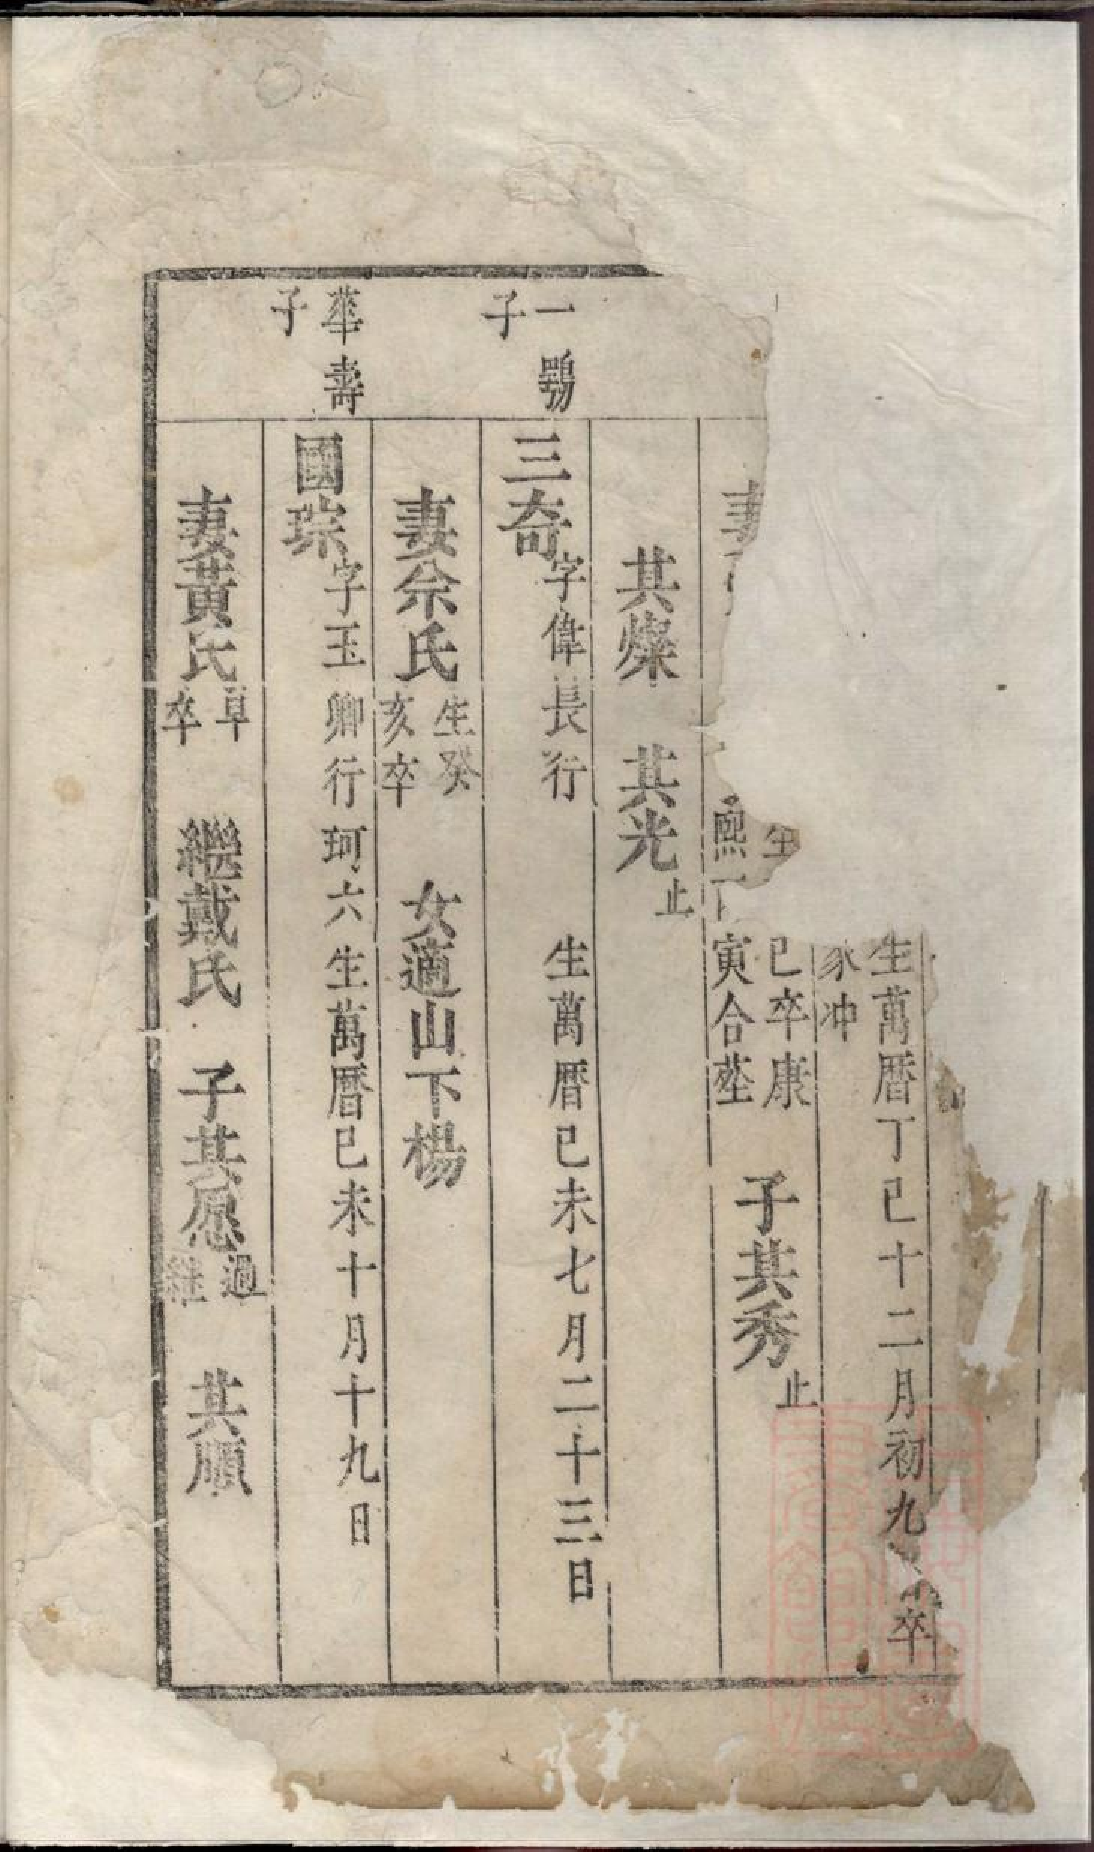 生萬曆丁巳十二月初九 卒
冢冲
妻 生巳卒康
熙 寅合塟 子其秀止
其燦 其光止
一鶚
子
三奇字偉長行 生萬曆己未七月二十三日
妻佘氏生癸
亥卒 女適山下楊
華壽
子
國琮字玉卿行珂六生萬曆己未十月十九日
妻黃氏早
卒 繼戴氏 子其愿過
継 其順